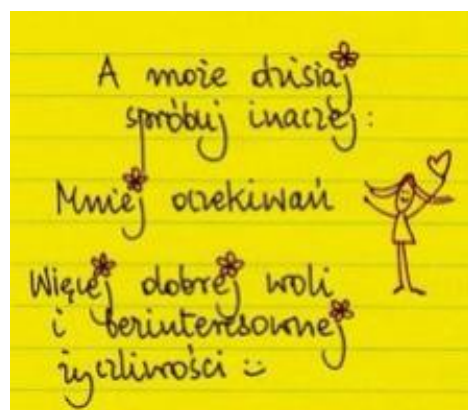 A może dzisiaj
spróbuj inaczej:
Mniej oczekiwań
Więcej dobrej woli
i bezinteresownej
życzliwości :)